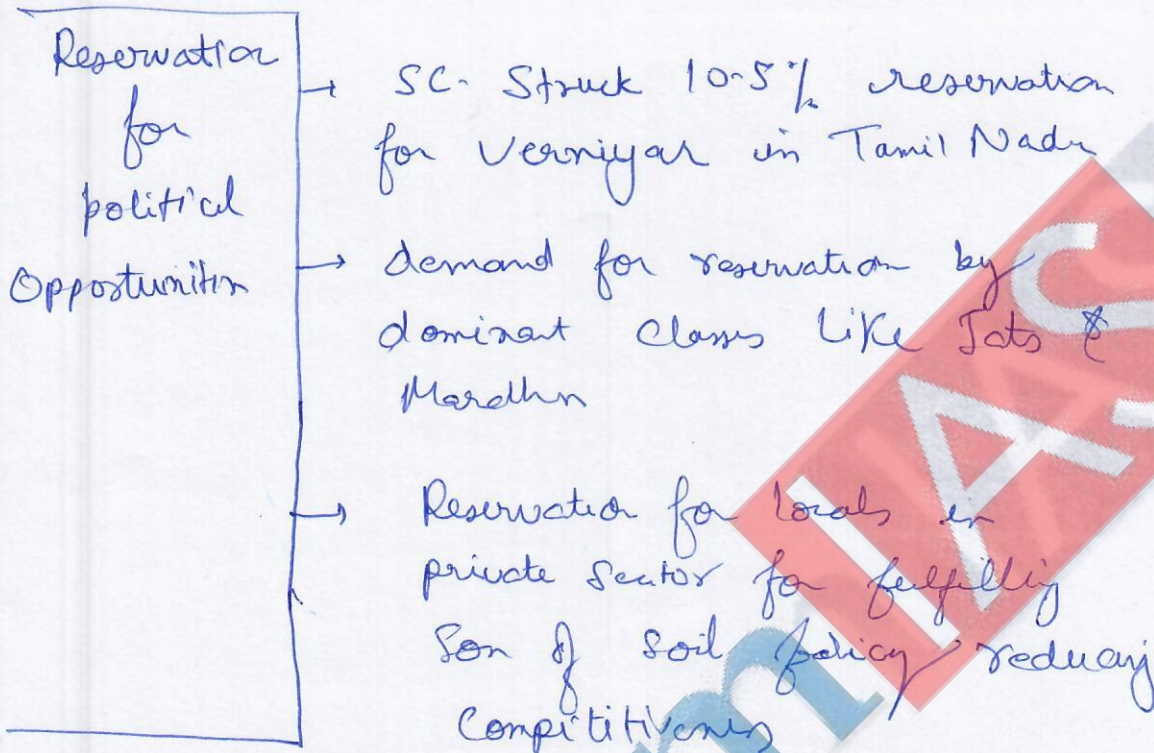 Reservation
for
political
Opportunities
→ SC- Struck 10.5% reservation
for Verniyar in Tamil Nadu
→ demand for reservation by
dominant classes like Jats &
→ Reservation for locals in
private sector for fulfilling
Son of soil policy reducing
Compititiveness
IAS